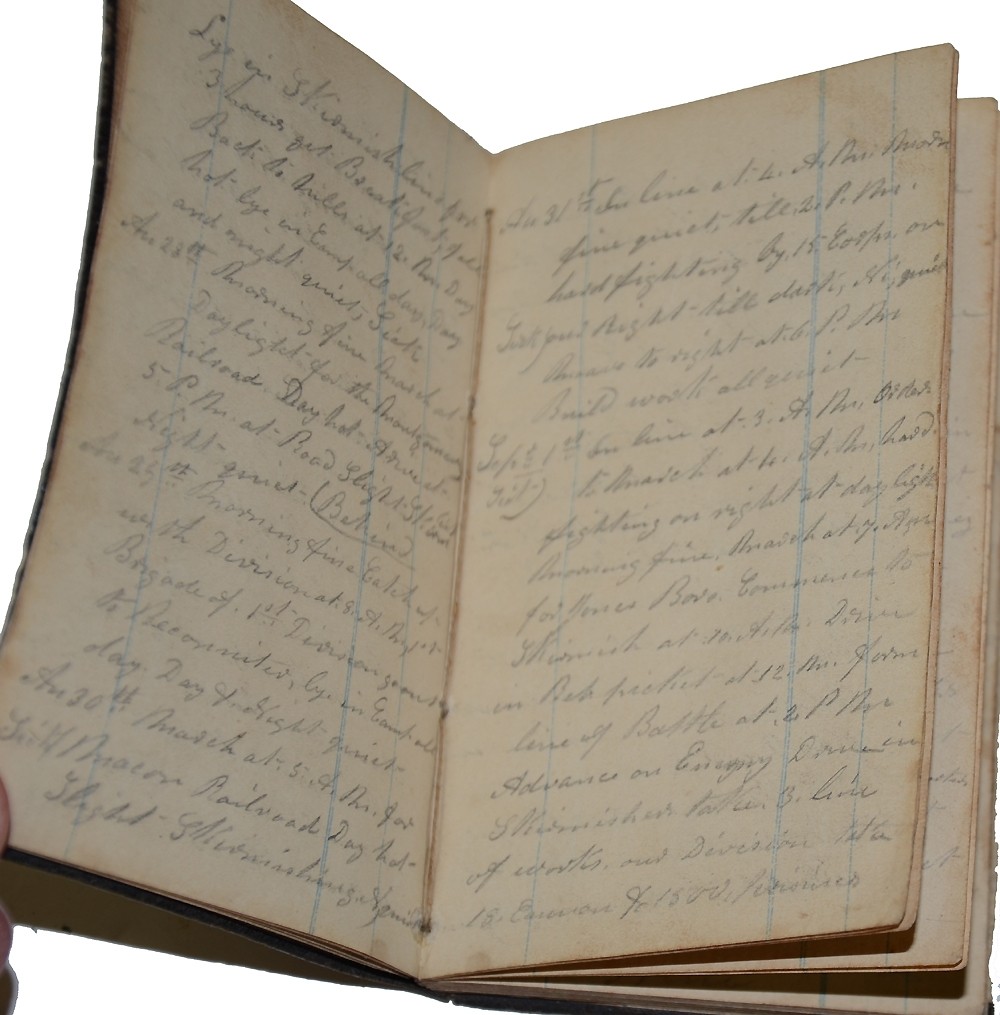 Lye in Skirmish line for
3 hours get Breakfast, fall
Back to hills at 12. M. Day
hot lye in Camp all day, Day
and night quiet, Sick
Au 28th Morning fine March at
Daylight for the Montgomery
Railroad. Day hot Arrive at
5 P. M. at Road Slight Skirm
Night quiet (Behind)
Au 29th Morning fine
with Division at 8. A. M. 1st
Brigade of 1st Division goes out
to Reconniter, lye in Camp all
day. Day & Night quiet
Au 30th March at 5. A M. for
Macon Railroad Day hot
Slight Skirmishing, & quiet
Au 31st In line at 4. A. M. Morn
fine quiet, till 2. P. M.
hard fighting by 15 Corps on
our Right till dark, Ni, quiet
Moove to right at 6. P. M
Build work all quiet
Sept 1st In line at 3. A. M, Order
to March at 6. A. M, hard
fighting on right at daylight
Morning fine, March at 7. A M
for Jones Boro. Commence to
Skirmish at 10. A. M. Drive
in Reb picket at 12. M. form
line of Battle at 2. P M
Advance on Enemy Drive in
Skirmishers take 3. line
of works. our Division take
18. Cannon & 1500, Prisoners